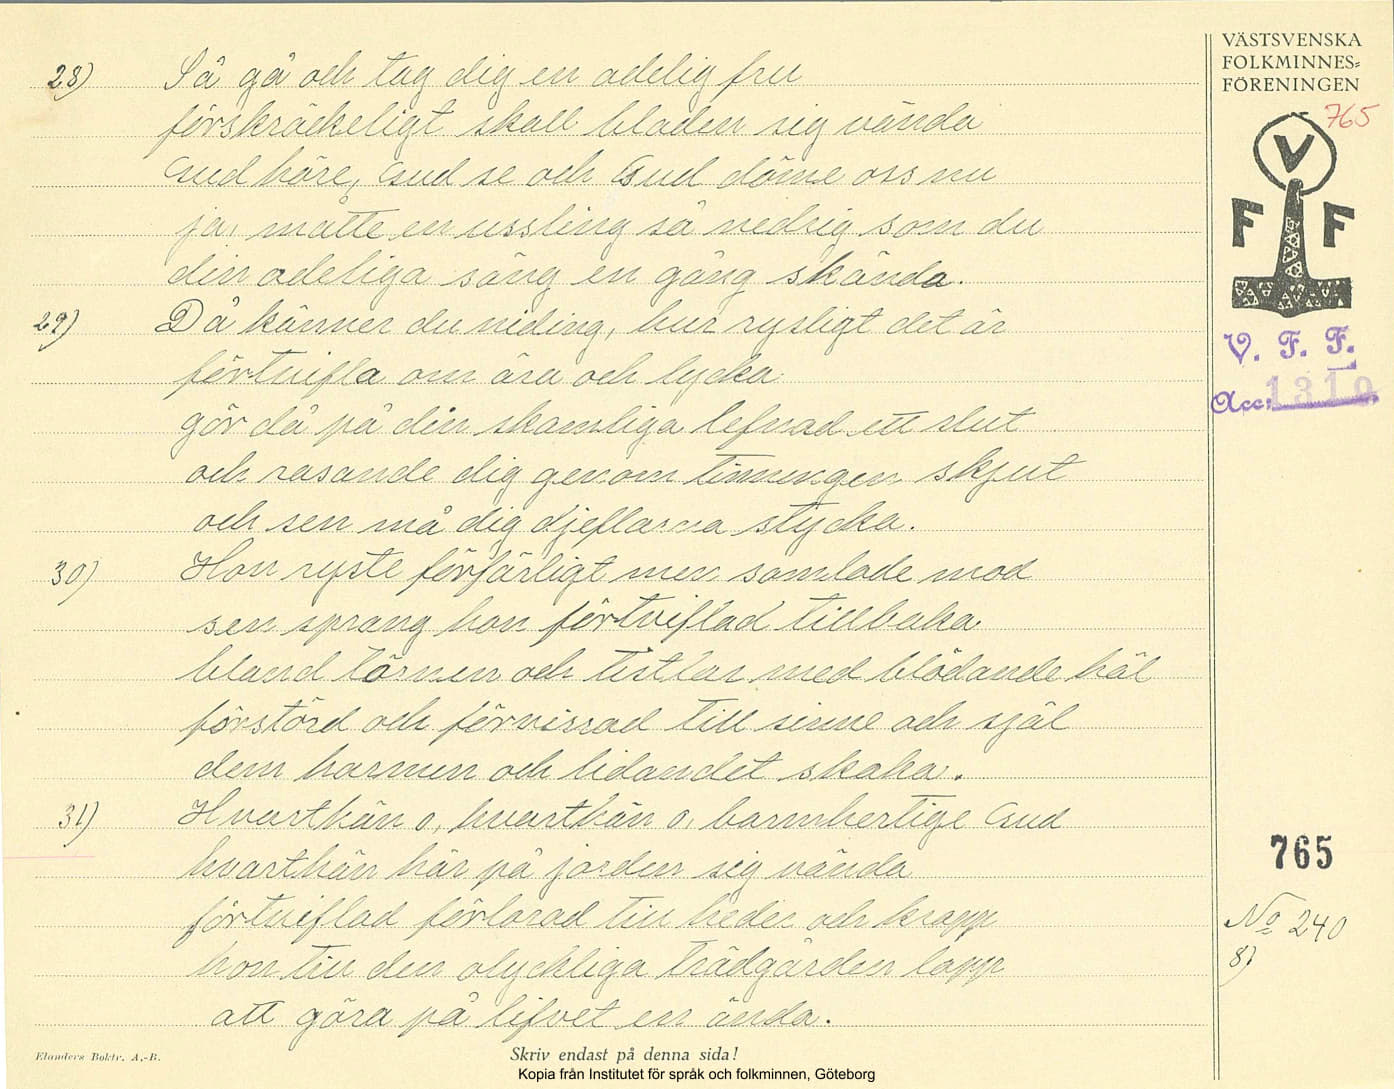 28) Så gå och tag dig en adelig fru
förskräckeligt skall bladen sig vända
Gud höre, Gud se och Gud döme oss nu
ja, måtte en ussling så nedrig som du
din adeliga säng en gång skända.
29) Då känner du niding, hur rysligt det är
förtvifla om ära och lycka
gör då på din skamliga lefnad ett slut
och rasande dig genom tinningen skjut
och sen må dig djeflarna stycka.
30) Hon ryste förfärligt men samlade mod
sen sprang hon förtviflad tillbaka
bland törnen och tistlar med blödande häl
förstörd och förvirrad till sinne och själ
dem harmen och lidandet skaka.
31) Hvarthän o, hvarthän o, barmhertige Gud
hvarthän här på jorden sig vända
förtviflad förlorad till heder och kropp
hon till den olyckliga trädgården lopp
att göra på lifvet en ända.
VÄSTSVENSKA
FOLKMINNES=
FÖRENINGEN
765
V
F F
V. F. F.
Acc: 1319
765
No 240
8)
Elanders Boktr. A.-B.
Skriv endast på denna sida!
Kopia från Institutet för språk och folkminnen, Göteborg